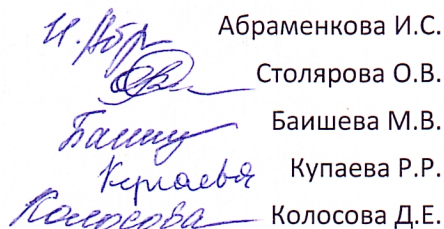 И. Абр Абраменкова И.С.
Столярова О.В.
Баишева М.В.
Купаева Купаева Р.Р.
Колосова Колосова Д.Е.